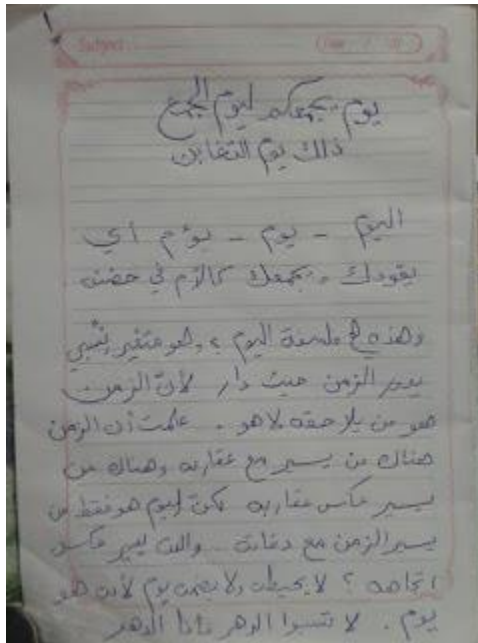 Subject:
يوم يجمعكم ليوم الجمع
ذلك يوم التغابن
اليوم - يوم - يؤم أي
يقودك ويجمعك كالأم في حضنه
وهذه هي اليوم وهو متغير نسبي
يدور الزمن حيث دار لأن الزمن
هو من يلاحقه لا هو. علمت أن الزمن
هناك من يسير مع عقاربه وهناك من
يسير عكس عقاربه لكن اليوم هو فقط من
يسير الزمن مع عكس
اتجاهه؟ لا يوم لأنه هو
يوم. لا تسبوا الدهر الدهر